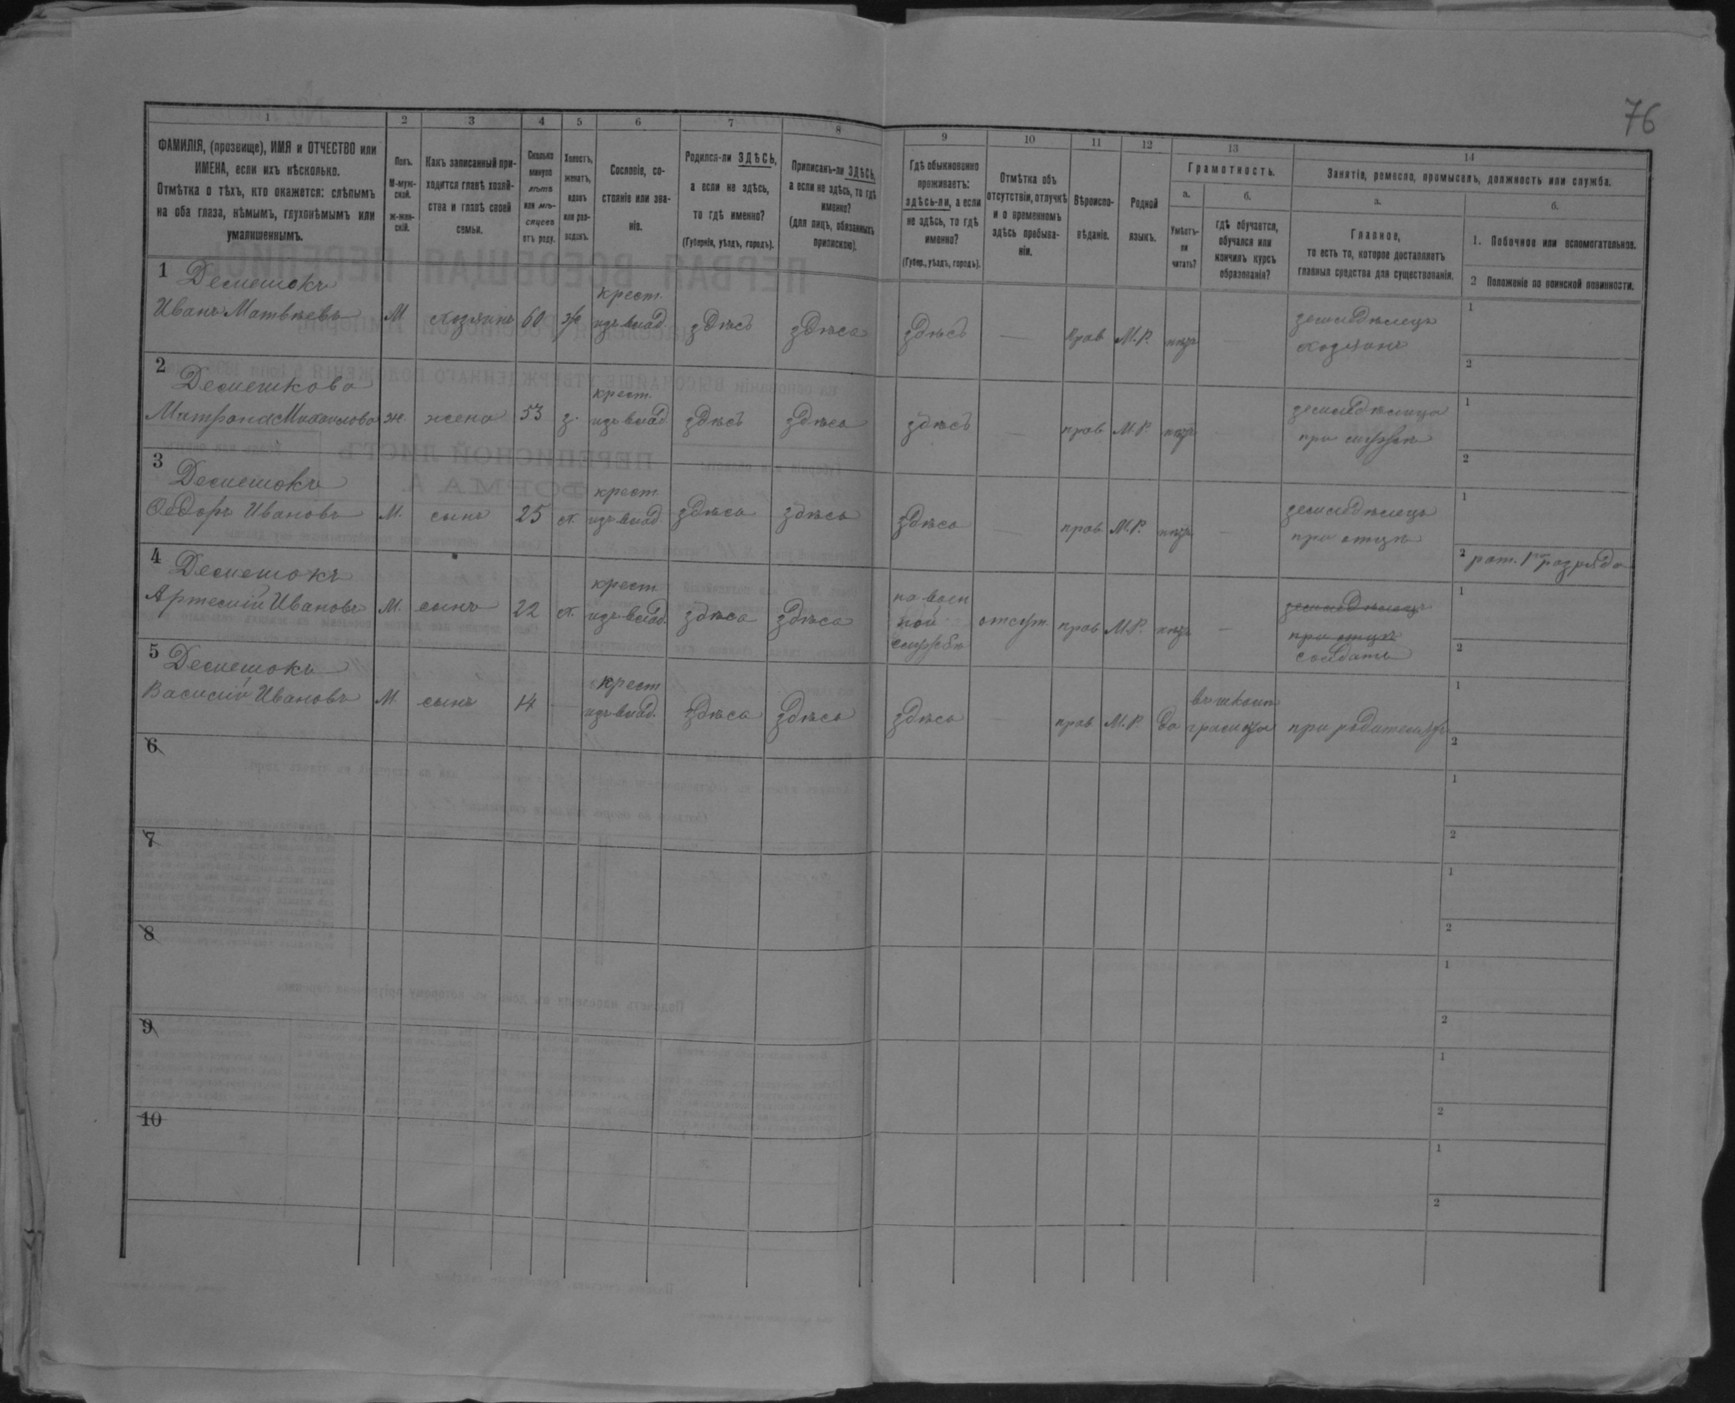 76
1 2 3 4 5 6 7 8 9 10 11 12 13 14
ФАМИЛІЯ, (прозвище), ИМЯ и ОТЧЕСТВО или
ИМЕНА, если ихъ нѣсколько.
Отмѣтка о тѣхъ, кто окажется: слѣпымъ
на оба глаза, нѣмымъ, глухонѣмымъ или
умалишеннымъ.
Полъ.
М-муж-
ской.
ж-жен-
скій.
Какъ записанный при-
ходится главѣ хозяй-
ства и главѣ своей
семьи.
Сколько
минуло
лѣтъ
или мѣ-
сяцевъ
отъ роду.
Холостъ,
женатъ,
вдовъ
или раз-
веденъ.
Сословіе, со-
стояніе или зва-
ніе.
Родился-ли ЗДѢСЬ,
а если не здѣсь,
то гдѣ именно?
(Губернія, уѣздъ, городъ).
Приписанъ-ли ЗДѢСЬ,
а если не здѣсь, то гдѣ
именно?
(для лицъ, обязанныхъ
припискою).
Гдѣ обыкновенно
проживаетъ:
здѣсь-ли, а если
не здѣсь, то гдѣ
именно?
(Губер., уѣздъ, городъ).
Отмѣтка объ
отсутствіи, отлучкѣ
и о временномъ
здѣсь пребыва-
ніи.
Вѣроиспо-
вѣданіе.
Родной
языкъ.
Грамотность.
а.
Умѣетъ-
ли
читать?
б.
гдѣ обучается,
обучался или
кончилъ курсъ
образованія?
Занятіе, ремесло, промыселъ, должность или служба.
а.
Главное,
то есть то, которое доставляетъ
главныя средства для существованія.
б.
1. Побочное или вспомогательное.
2 Положеніе по воинской повинности.
1 Демешокъ крест. земледѣлецъ 1
Иванъ Матвѣевъ М хозяинъ 60 ж изъ влад. здѣсь здѣсь здѣсь — прав М.Р. нѣтъ — хозяинъ
2
2 Демешкова крест. земледѣлица 1
Матрона Михайлова ж. жена 53 з. изъ влад. здѣсь здѣсь здѣсь — прав М.Р. нѣтъ — при мужѣ
2
3 Демешокъ крест земледѣлецъ 1
Ѳедоръ Ивановъ М. сынъ 25 х. изъ влад. здѣсь здѣсь здѣсь — прав М.Р. нѣтъ — при отцѣ
2 рат. 1го разряда
4 Демешокъ крест на воен земледѣлецъ 1
Артемій Ивановъ М. сынъ 22 х. изъ влад. здѣсь здѣсь ной отсут. прав М.Р. нѣтъ — при отцѣ
службѣ солдатъ 2
5 Демешокъ крест в школѣ 1
Василій Ивановъ М. сынъ 14 — изъ влад. здѣсь здѣсь здѣсь — прав М.Р. да при родителяхъ
2
6 1
2
7 1
2
8 1
2
9 1
2
10 1
2